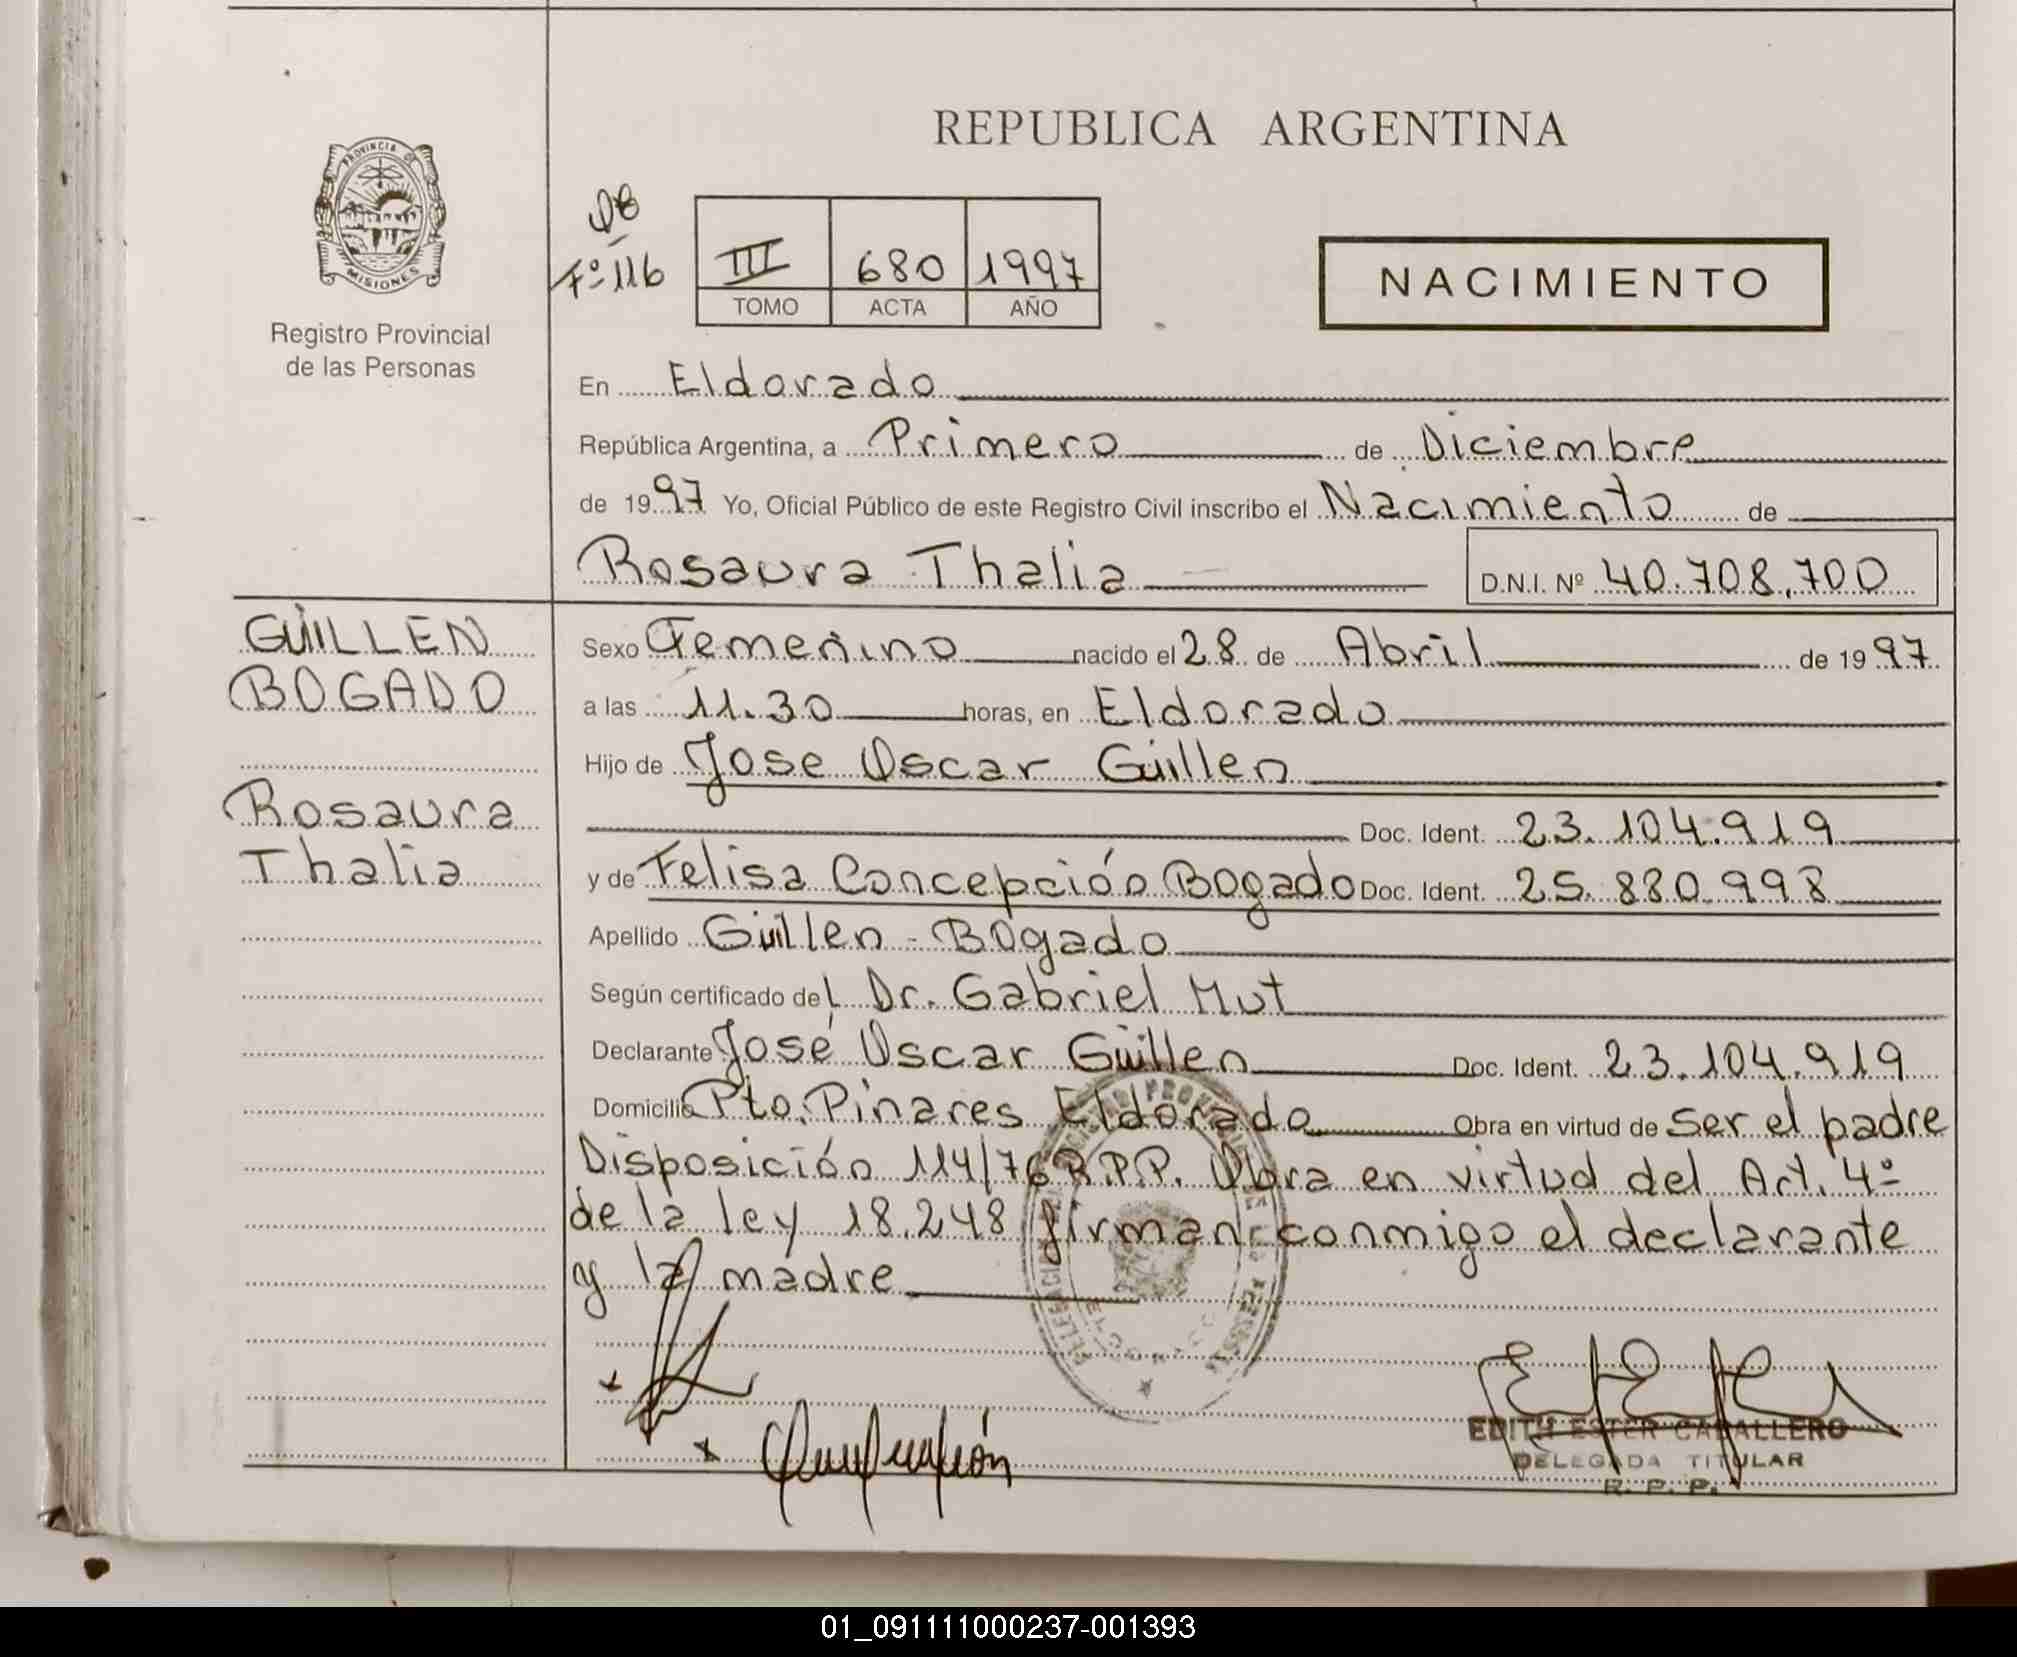 REPUBLICA ARGENTINA
PROVINCIA DE
MISIONES
Registro Provincial
de las Personas
Fº 116
III 680 1997
TOMO ACTA AÑO
NACIMIENTO
En Eldorado
República Argentina, a Primero de Diciembre
de 1997 Yo, Oficial Público de este Registro Civil inscribo el Nacimiento de
Rosaura Thalia D.N.I. Nº 40.708.700
GÜILLEN
BOGADO
Rosaura
Thalia
Sexo Femenino nacido el 28 de Abril de 1997
a las 11.30 horas, en Eldorado
Hijo de Jose Oscar Güillen
Doc. Ident. 23.104.919
y de Felisa Concepción Bogado Doc. Ident. 25.880.998
Apellido Güillen - Bogado
Según certificado del Dr. Gabriel Mut
Declarante José Oscar Güillen Doc. Ident. 23.104.919
Domicilio Pto. Pinares Eldorado Obra en virtud de ser el padre
Disposición 114/76 R.P.P. Obra en virtud del Art. 4º
de la ley 18.248 firman conmigo el declarante
y la madre
EDITH ESTER CABALLERO
DELEGADA TITULAR
R. P. P.
01_091111000237-001393